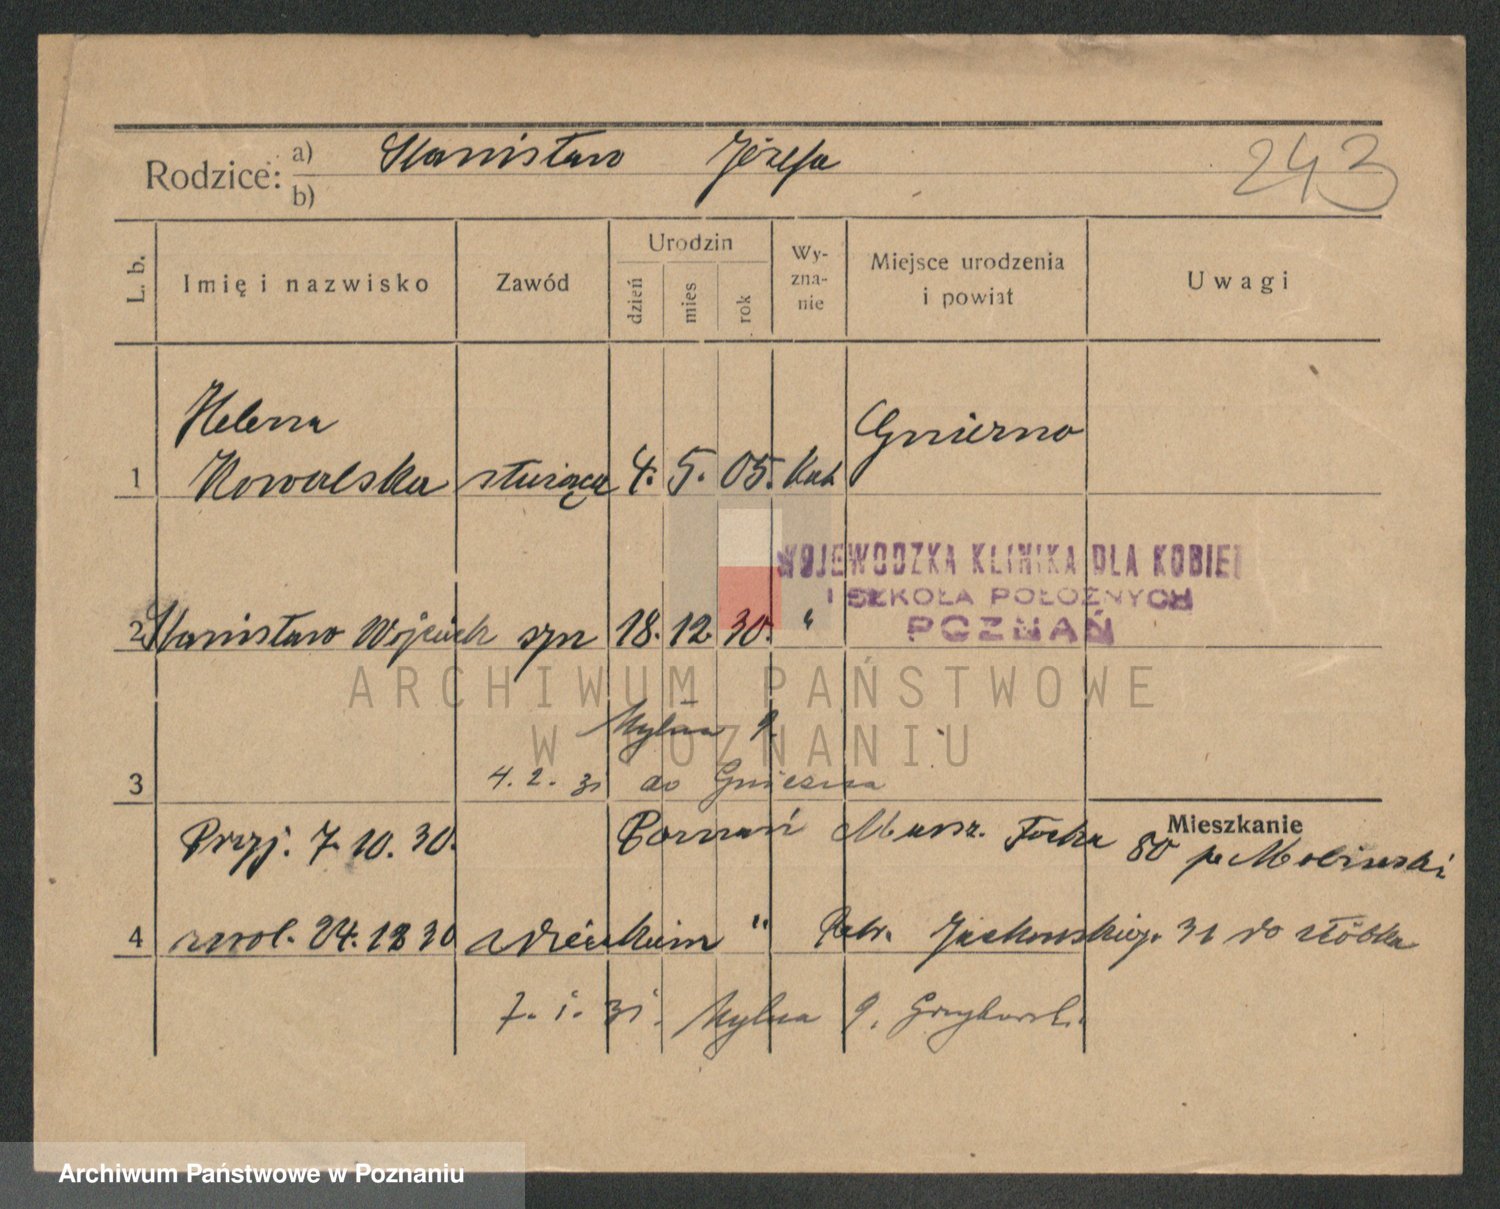 Rodzice: a) Stanisław Józefa
b)
243
L. b. Imię i nazwisko Zawód Urodzin dzień mies rok Wy-zna-nie Miejsce urodzenia i powiat Uwagi
Helena Gniezno
1 Kowalska służąca 4. 5. 05. Kat
WOJEWODZKA KLINIKA DLA KOBIET
I SZKOŁA POŁOŻNYCH
POZNAŃ
2 Stanisław Wojciech syn 18. 12. 30. "
ARCHIWUM PAŃSTWOWE
W POZNANIU
Mylna 9
3 4. 2. 31 do Gniezna
Mieszkanie
Przyj. 7. 10. 30. Poznań Marsz. Focha 80 p.
4 zwol. 24. 12 30 z dzieckiem " Jackowskiego 31 do żłóbka
7. 1. 31. Mylna 9.
Archiwum Państwowe w Poznaniu